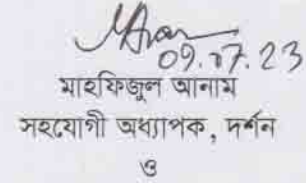 09.07.23
মাহফিজুল আনাম
সহযোগী অধ্যাপক, দর্শন
ও